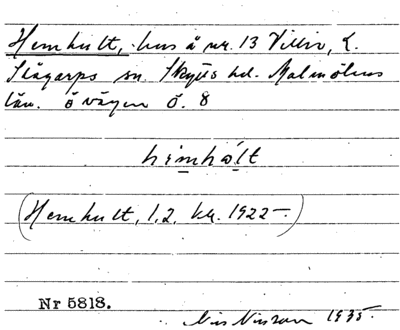 Hemhult, hus å nr. 13 Villie, L.
Slågarps sn. Skytts hd. Malmöhus
län. å vägen ö. 8
hemhalt
(Hemhult, l.2. kr. 1922–.)
Nr 5818.
Nils Nilsson 1935.